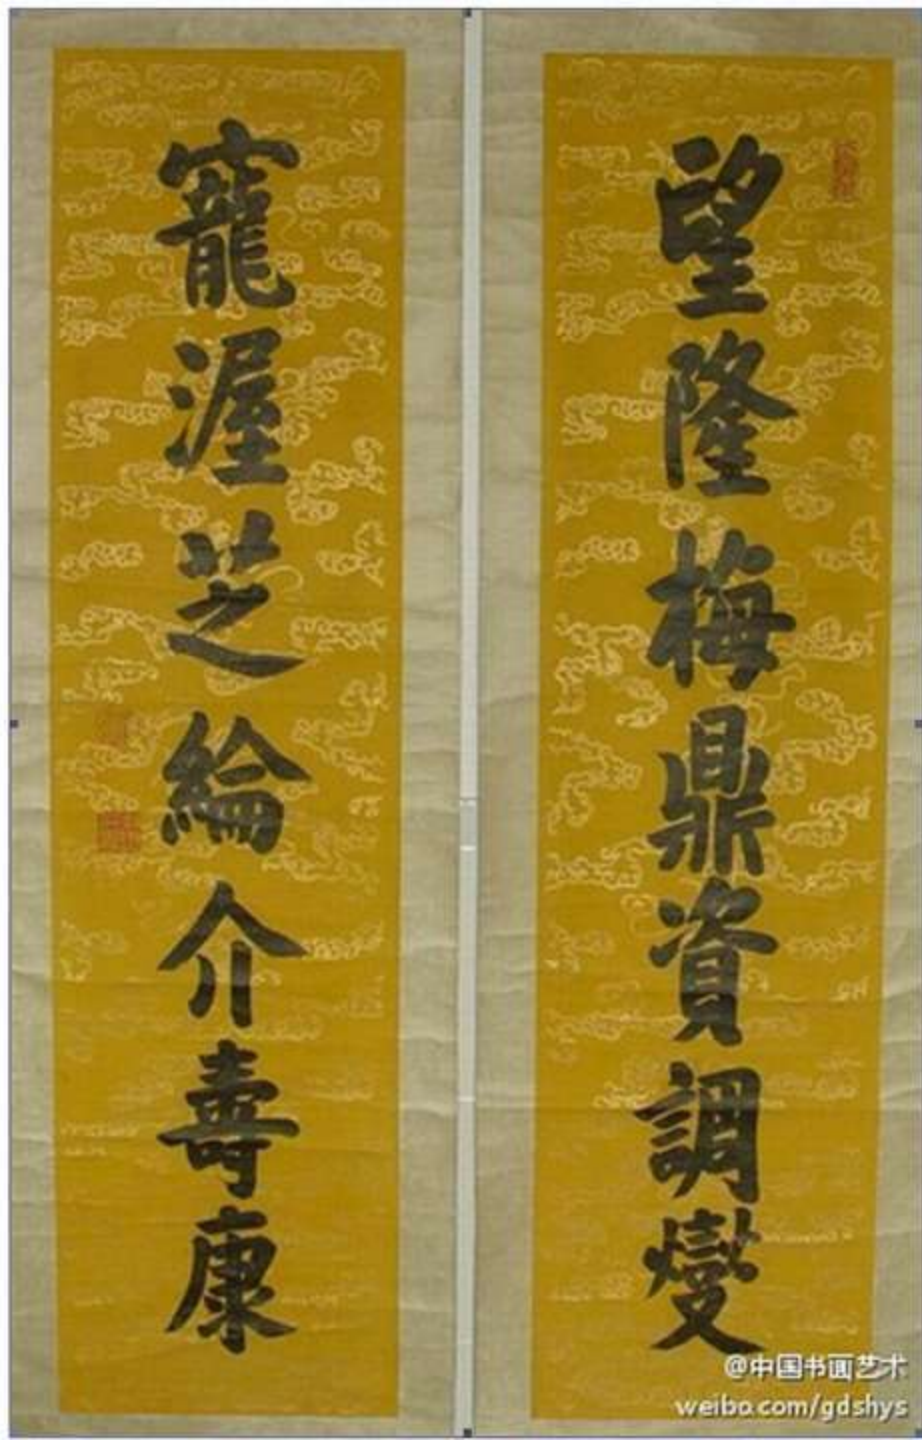 望隆梅鼎資調燮
寵渥芝綸介壽康
@中国书画艺术
weibo.com/gdshys